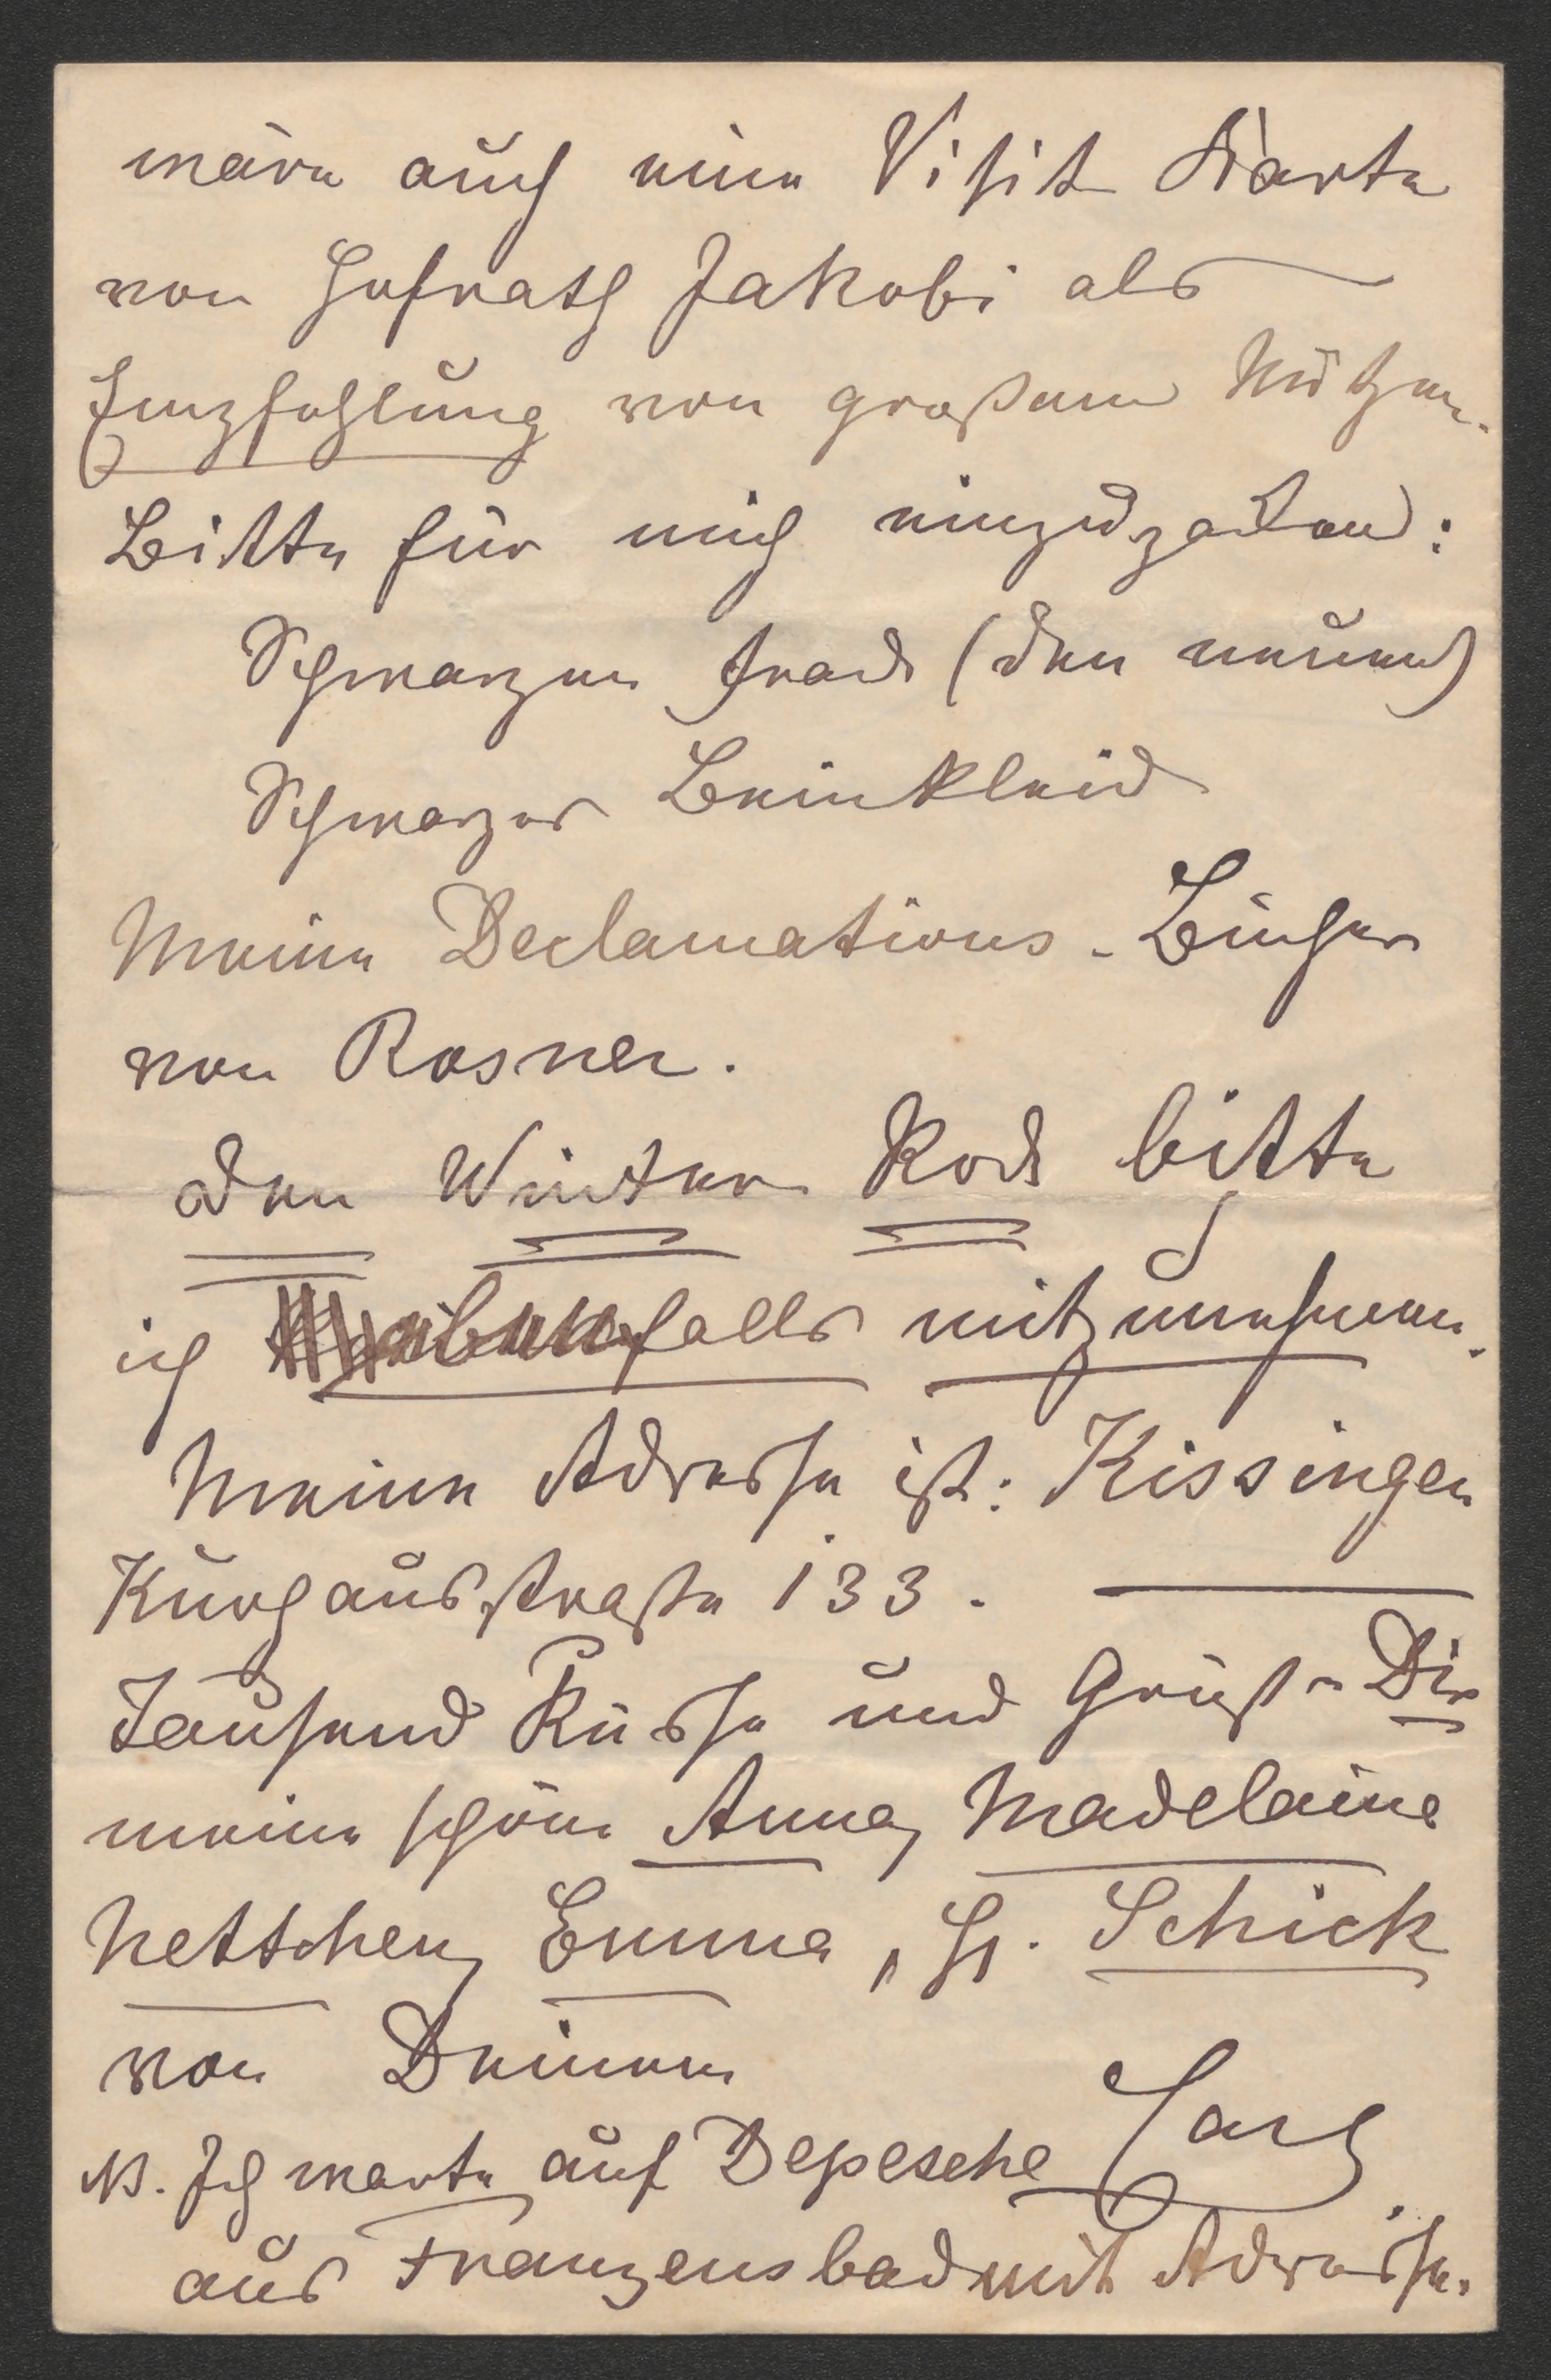 wäre auch eine Visit Karte
von Hofrath Jakobi als
Empfehlung von großem Nutzen.
Bitte für mich einzupacken:
Schwarzen Frack (den neuen)
Schwarzes Beinkleid
Meine Declamations-Bücher
von Rosner.
Den Winter Rock bitte
ich ebenfalls mitzunehmen.
Meine Adresse ist: Kissingen
Kurhausstraße 133.
Tausend Küsse und Grüße Dir
meine schöne Anna, Madelaine
Nettchen, Emma, H. Schick
von Deinem
Carl
NB. Ich warte auf Depesche
aus Franzensbad mit Adresse.